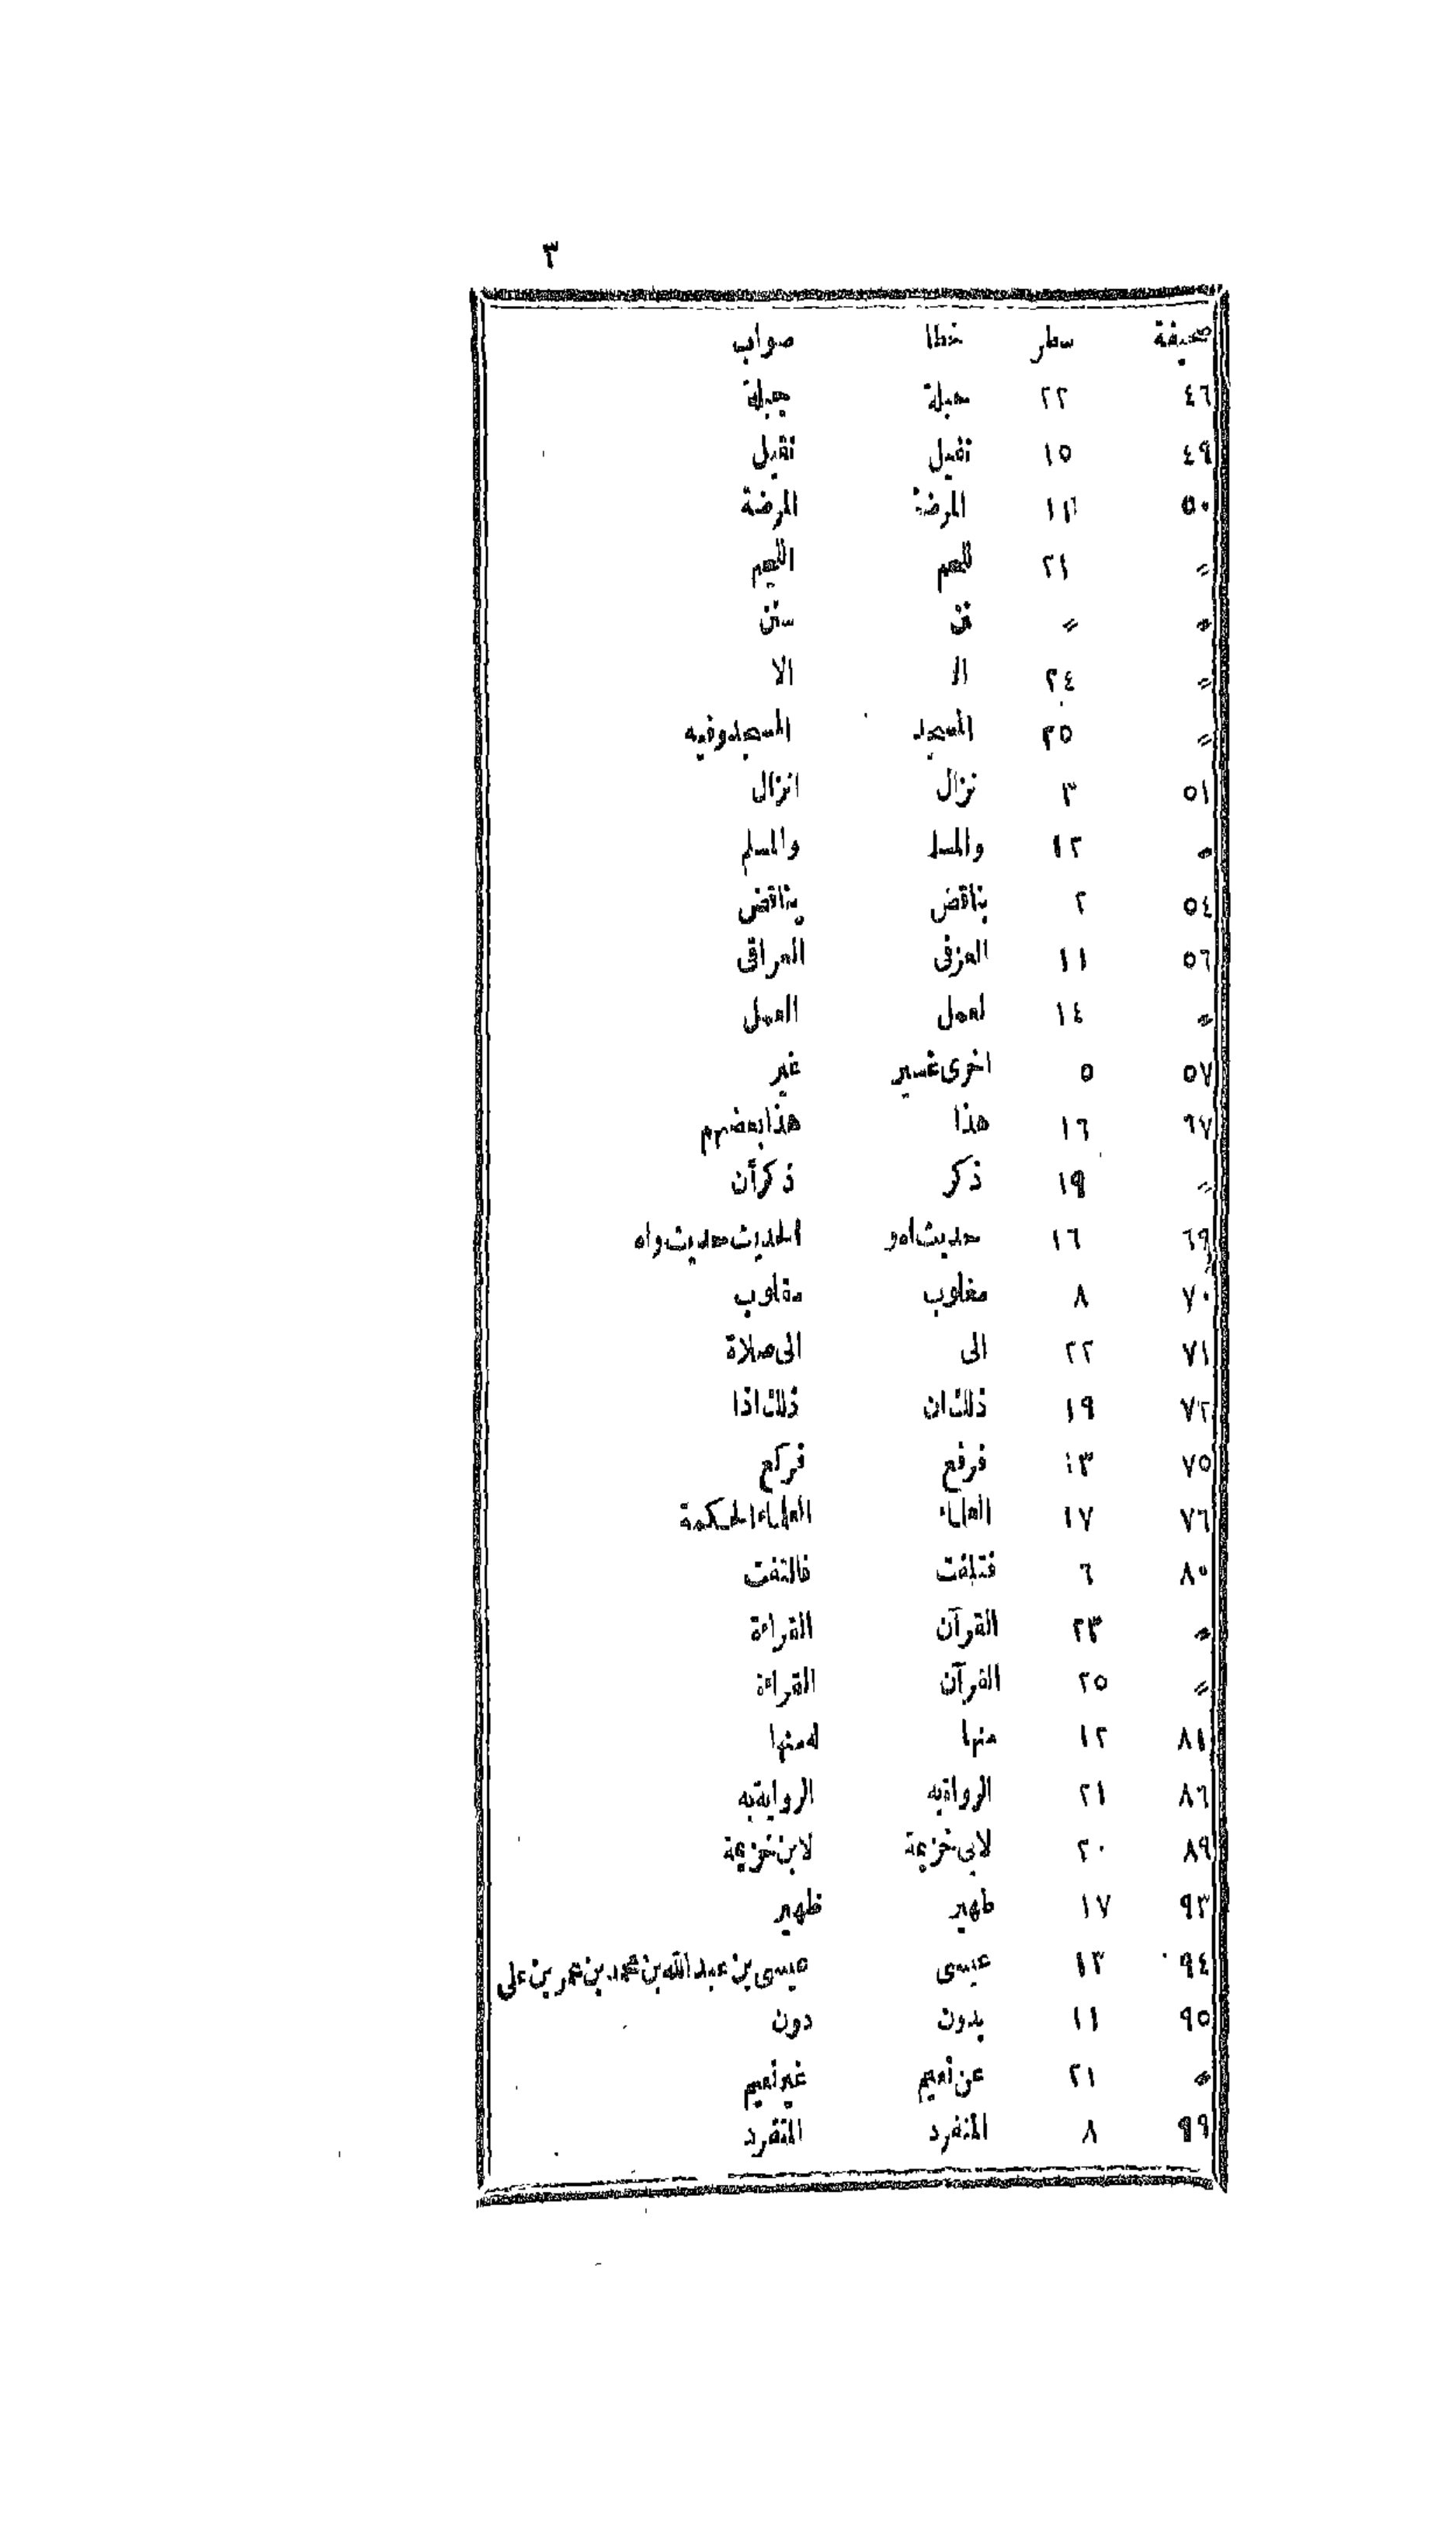 ٣
صحيفة سطر خطا صواب
٤٦ ٢٢ حبلة جبلة
٤٩ ١٥ نفيل نقيل
٥٠ المرضة المرضة
〃 ٢١ للهم اللهم
〃 〃
〃 ٢٤ الا الا
〃 ٢٥ المسجد المسجد وفيه
٥١ ٣ نزال انزال
〃 ١٢ والمسلـ والمسلم
٥٤ ٢ بناقض يناقض
٥٦ ١١ العزفى العراقى
〃 ١٤ لعمل العمل
٥٧ ٥ اخرى غسير غير
٦٧ ١٦ هذا هذا بعضهم
〃 ١٩ ذكر ذكر أن
٦٩ ١٦ حديث اهو الحديث حديث واه
٧٠ ٨ مغلوب مقلوب
٧١ ٢٢ الى الى صلاة
٧٢ ١٩ ذلك ان ذلك اذا
٧٥ ١٣ فرفع فركع
٧٦ ١٧ العلماء العلماء الحكمة
٨٠ ٦ فتلفت فالتفت
〃 ٢٣ القرآن القراءة
〃 ٢٥ القرآن القراءة
٨١ ١٢ منها له منها
٨٦ ٢١ الرواة به الرواية به
٨٩ ٢٠ لابى خزيمة لابن خزيمة
٩٣ ١٧ طهير ظهير
٩٤ ١٣ عيسى عيسى بن عبد الله بن محمد بن عمر بن على
٩٥ ١١ بدون دون
〃 ٢١ عن نعيم غير نعيم
٩٩ ٨ المنفرد المتفرد